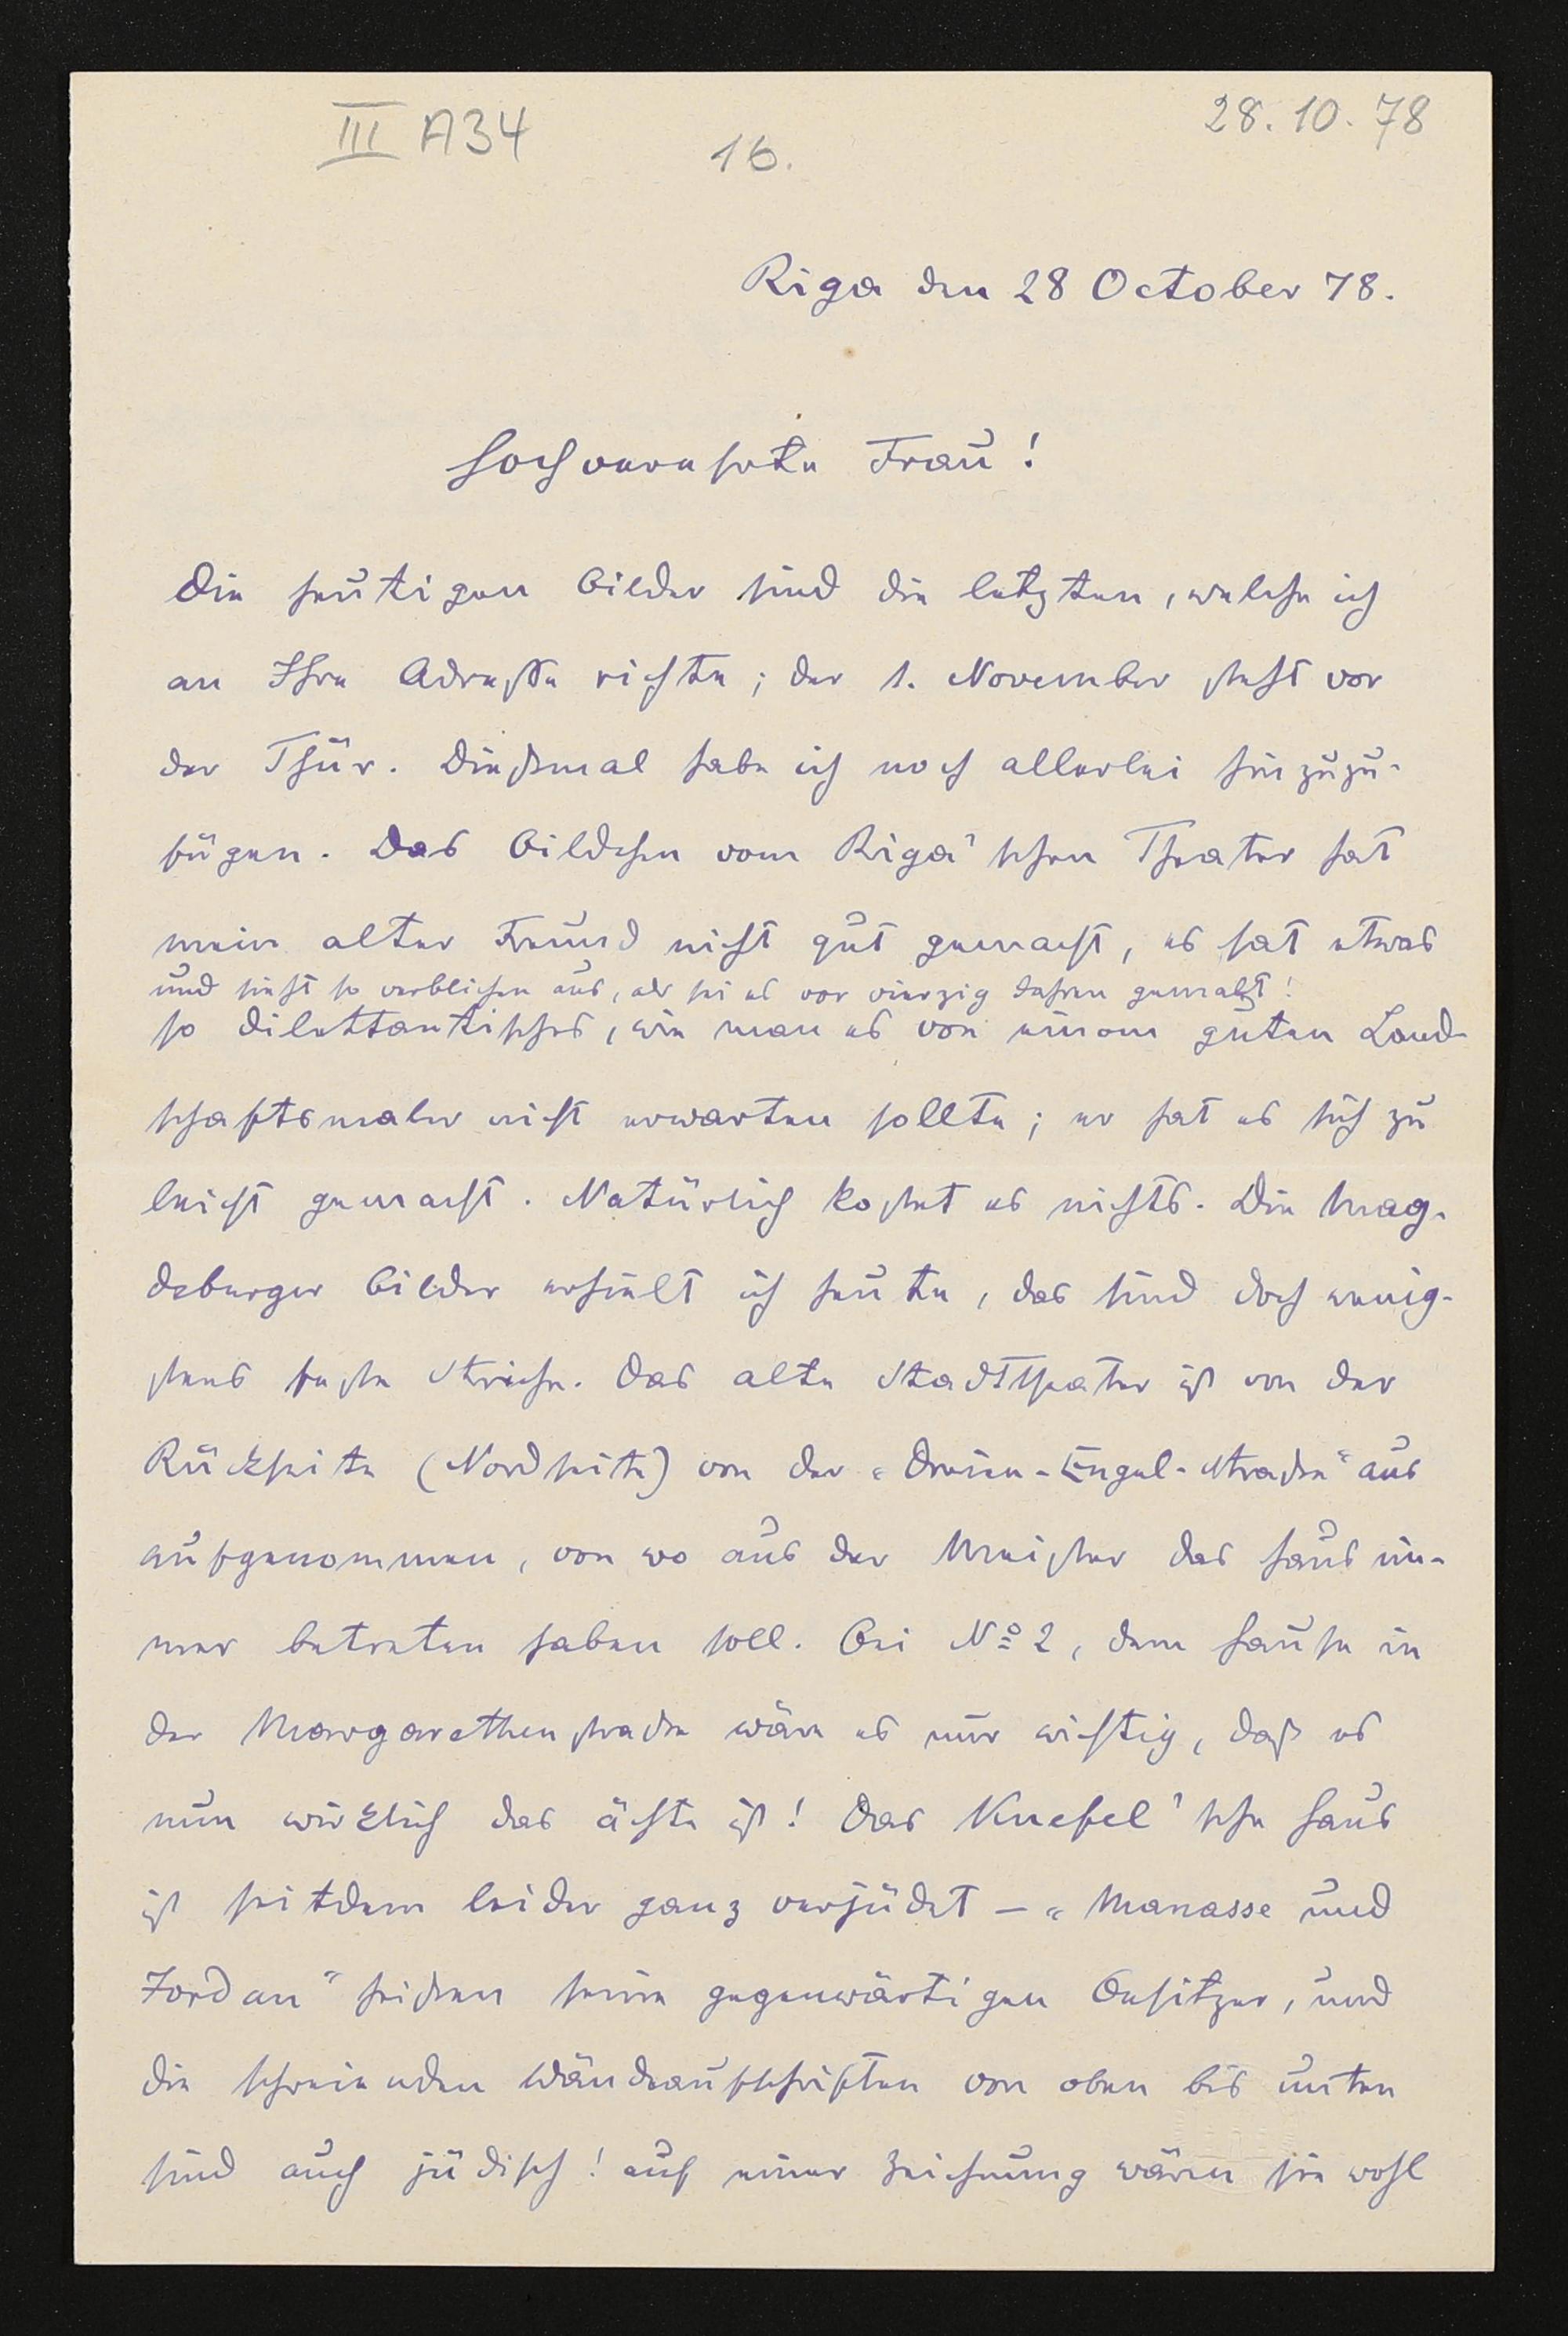 III A34
16.
28.10.78
Riga den 28 October 78.
Hochverehrte Frau!
Die heutigen Bilder sind die letzten, welche ich
an Ihre Adresse richte; der 1. November steht vor
der Thür. Dießmal habe ich noch allerlei hinzuzu-
fügen. Das Bildchen vom Riga'schen Theater hat
mein alter Freund nicht gut gemacht, es hat etwas
und sieht so verblichen aus, als sei es vor vierzig Jahren gemalt!
so dilettantisches, wie man es von einem guten Land-
schaftsmaler nicht erwarten sollte; er hat es sich zu
leicht gemacht. Natürlich kostet es nichts. Die Mag-
deburger Bilder erhielt ich heute, das sind doch wenig-
stens feste Striche. Das alte Stadttheater ist von der
Rückseite (Nordseite) von der „Dreien-Engel-Straße“ aus
aufgenommen, von wo aus der Meister das Haus im-
mer betreten haben soll. Bei No 2, dem Hause in
der Margarethenstraße wäre es nur wichtig, daß es
nun wirklich das ächte ist! Das Knefel'sche Haus
ist seitdem leider ganz verjüdet – „Manasse und
Jordan“ heißen seine gegenwärtigen Besitzer, und
die schreienden Wändeaufschriften von oben bis unten
sind auch jüdisch! auf einer Zeichnung wären sie wohl